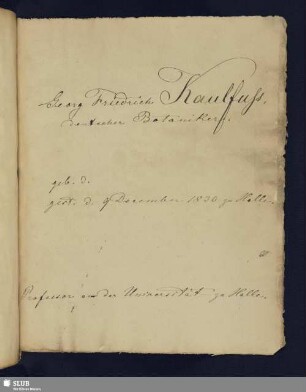 Georg Friedrich Kaulfuss,
deutscher Botaniker.
geb. d.
gest. d. 9 December 1830 zu Halle.
Professor an der Universität zu Halle.
SLUB